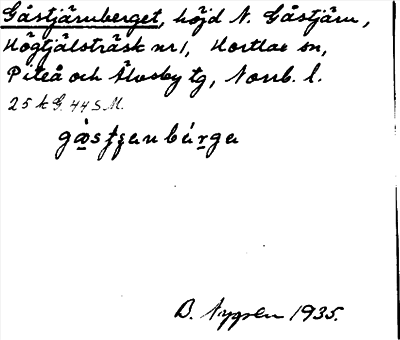 Gåstjärnberget, höjd N. Gåstjärn,
Högtjälsträsk nr 1, Hortlax sn,
Piteå och Älvsby tg, Norrb. l.
25 k G. 44 S.M.
gå̀stjanbárga
B. Nygren 1935.